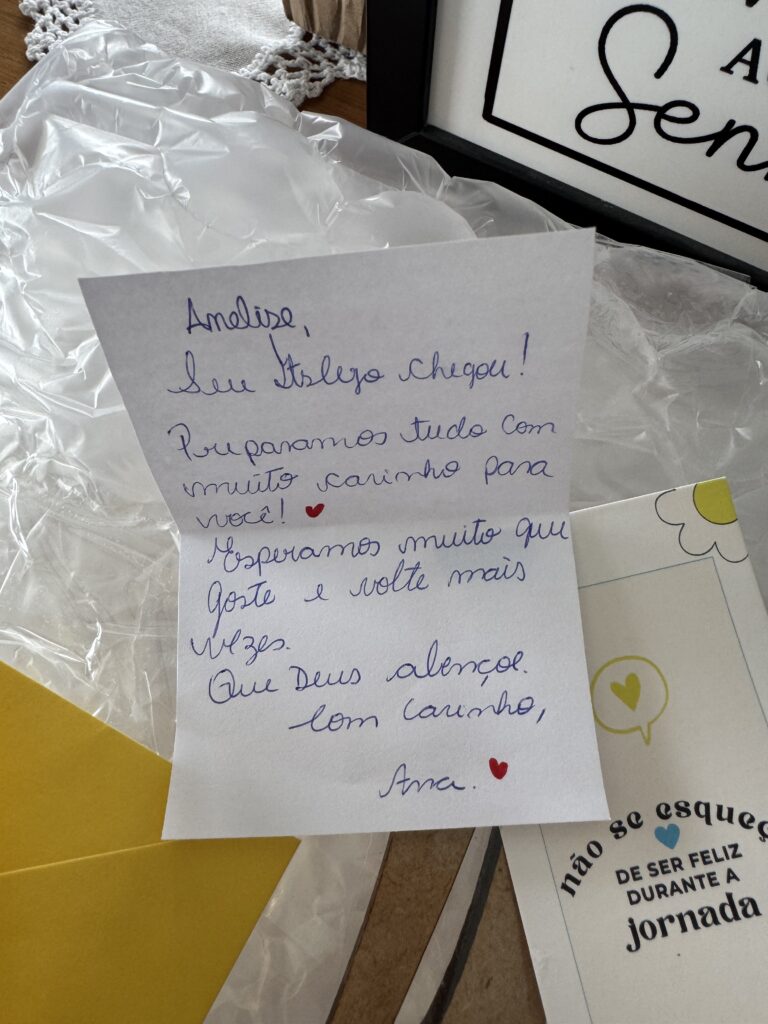 A
Sen
Anelise,
Seu Italejo chegou!
Preparamos tudo com
muito carinho para
você!
Esperamos muito que
goste e volte mais
vezes.
Que Deus abençoe.
Com carinho,
Ana.
não se esqueç
DE SER FELIZ
DURANTE A
jornada